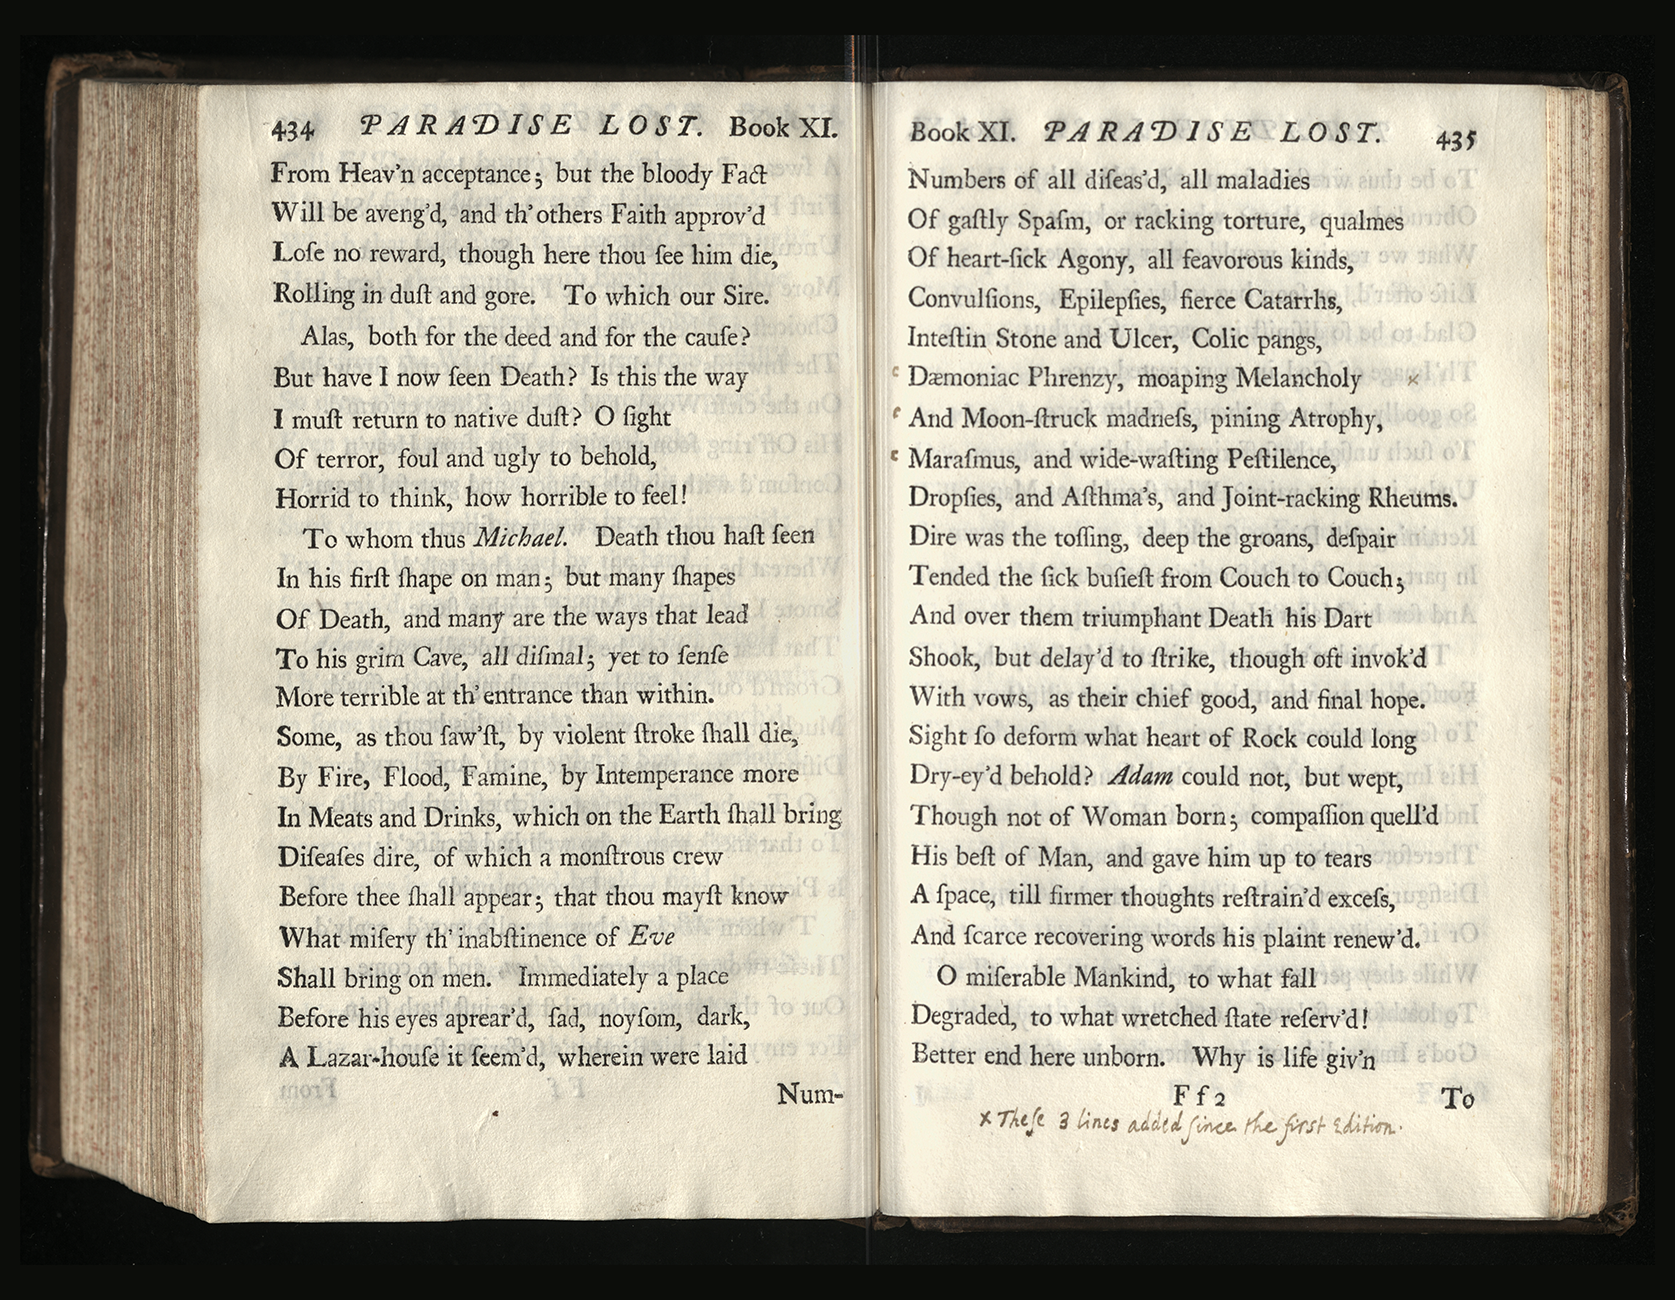 434 PARADISE LOST. Book XI.
From Heav'n acceptance; but the bloody Fact
Will be aveng'd, and th' others Faith approv'd
Loſe no reward, though here thou ſee him die,
Rolling in duſt and gore. To which our Sire.
Alas, both for the deed and for the cauſe?
But have I now ſeen Death? Is this the way
I muſt return to native duſt? O ſight
Of terror, foul and ugly to behold,
Horrid to think, how horrible to feel!
To whom thus Michael. Death thou haſt ſeen
In his firſt ſhape on man; but many ſhapes
Of Death, and many are the ways that lead
To his grim Cave, all diſmal; yet to ſenſe
More terrible at th' entrance than within.
Some, as thou ſaw'ſt, by violent ſtroke ſhall die,
By Fire, Flood, Famine, by Intemperance more
In Meats and Drinks, which on the Earth ſhall bring
Diſeaſes dire, of which a monſtrous crew
Before thee ſhall appear; that thou mayſt know
What miſery th' inabſtinence of Eve
Shall bring on men. Immediately a place
Before his eyes aprear'd, ſad, noyſom, dark,
A Lazar-houſe it ſeem'd, wherein were laid
Num-
Book XI. PARADISE LOST. 435
Numbers of all diſeas'd, all maladies
Of gaſtly Spaſm, or racking torture, qualmes
Of heart-ſick Agony, all feavorous kinds,
Convulſions, Epilepſies, fierce Catarrhs,
Inteſtin Stone and Ulcer, Colic pangs,
c Dæmoniac Phrenzy, moaping Melancholy ×
c And Moon-ſtruck madneſs, pining Atrophy,
c Maraſmus, and wide-waſting Peſtilence,
Dropſies, and Aſthma's, and Joint-racking Rheums.
Dire was the toſſing, deep the groans, deſpair
Tended the ſick buſieſt from Couch to Couch;
And over them triumphant Death his Dart
Shook, but delay'd to ſtrike, though oft invok'd
With vows, as their chief good, and final hope.
Sight ſo deform what heart of Rock could long
Dry-ey'd behold? Adam could not, but wept,
Though not of Woman born; compaſſion quell'd
His beſt of Man, and gave him up to tears
A ſpace, till firmer thoughts reſtrain'd exceſs,
And ſcarce recovering words his plaint renew'd.
O miſerable Mankind, to what fall
Degraded, to what wretched ſtate reſerv'd!
Better end here unborn. Why is life giv'n
F f 2 To
× Theſe 3 lines added ſince the firſt Edition.